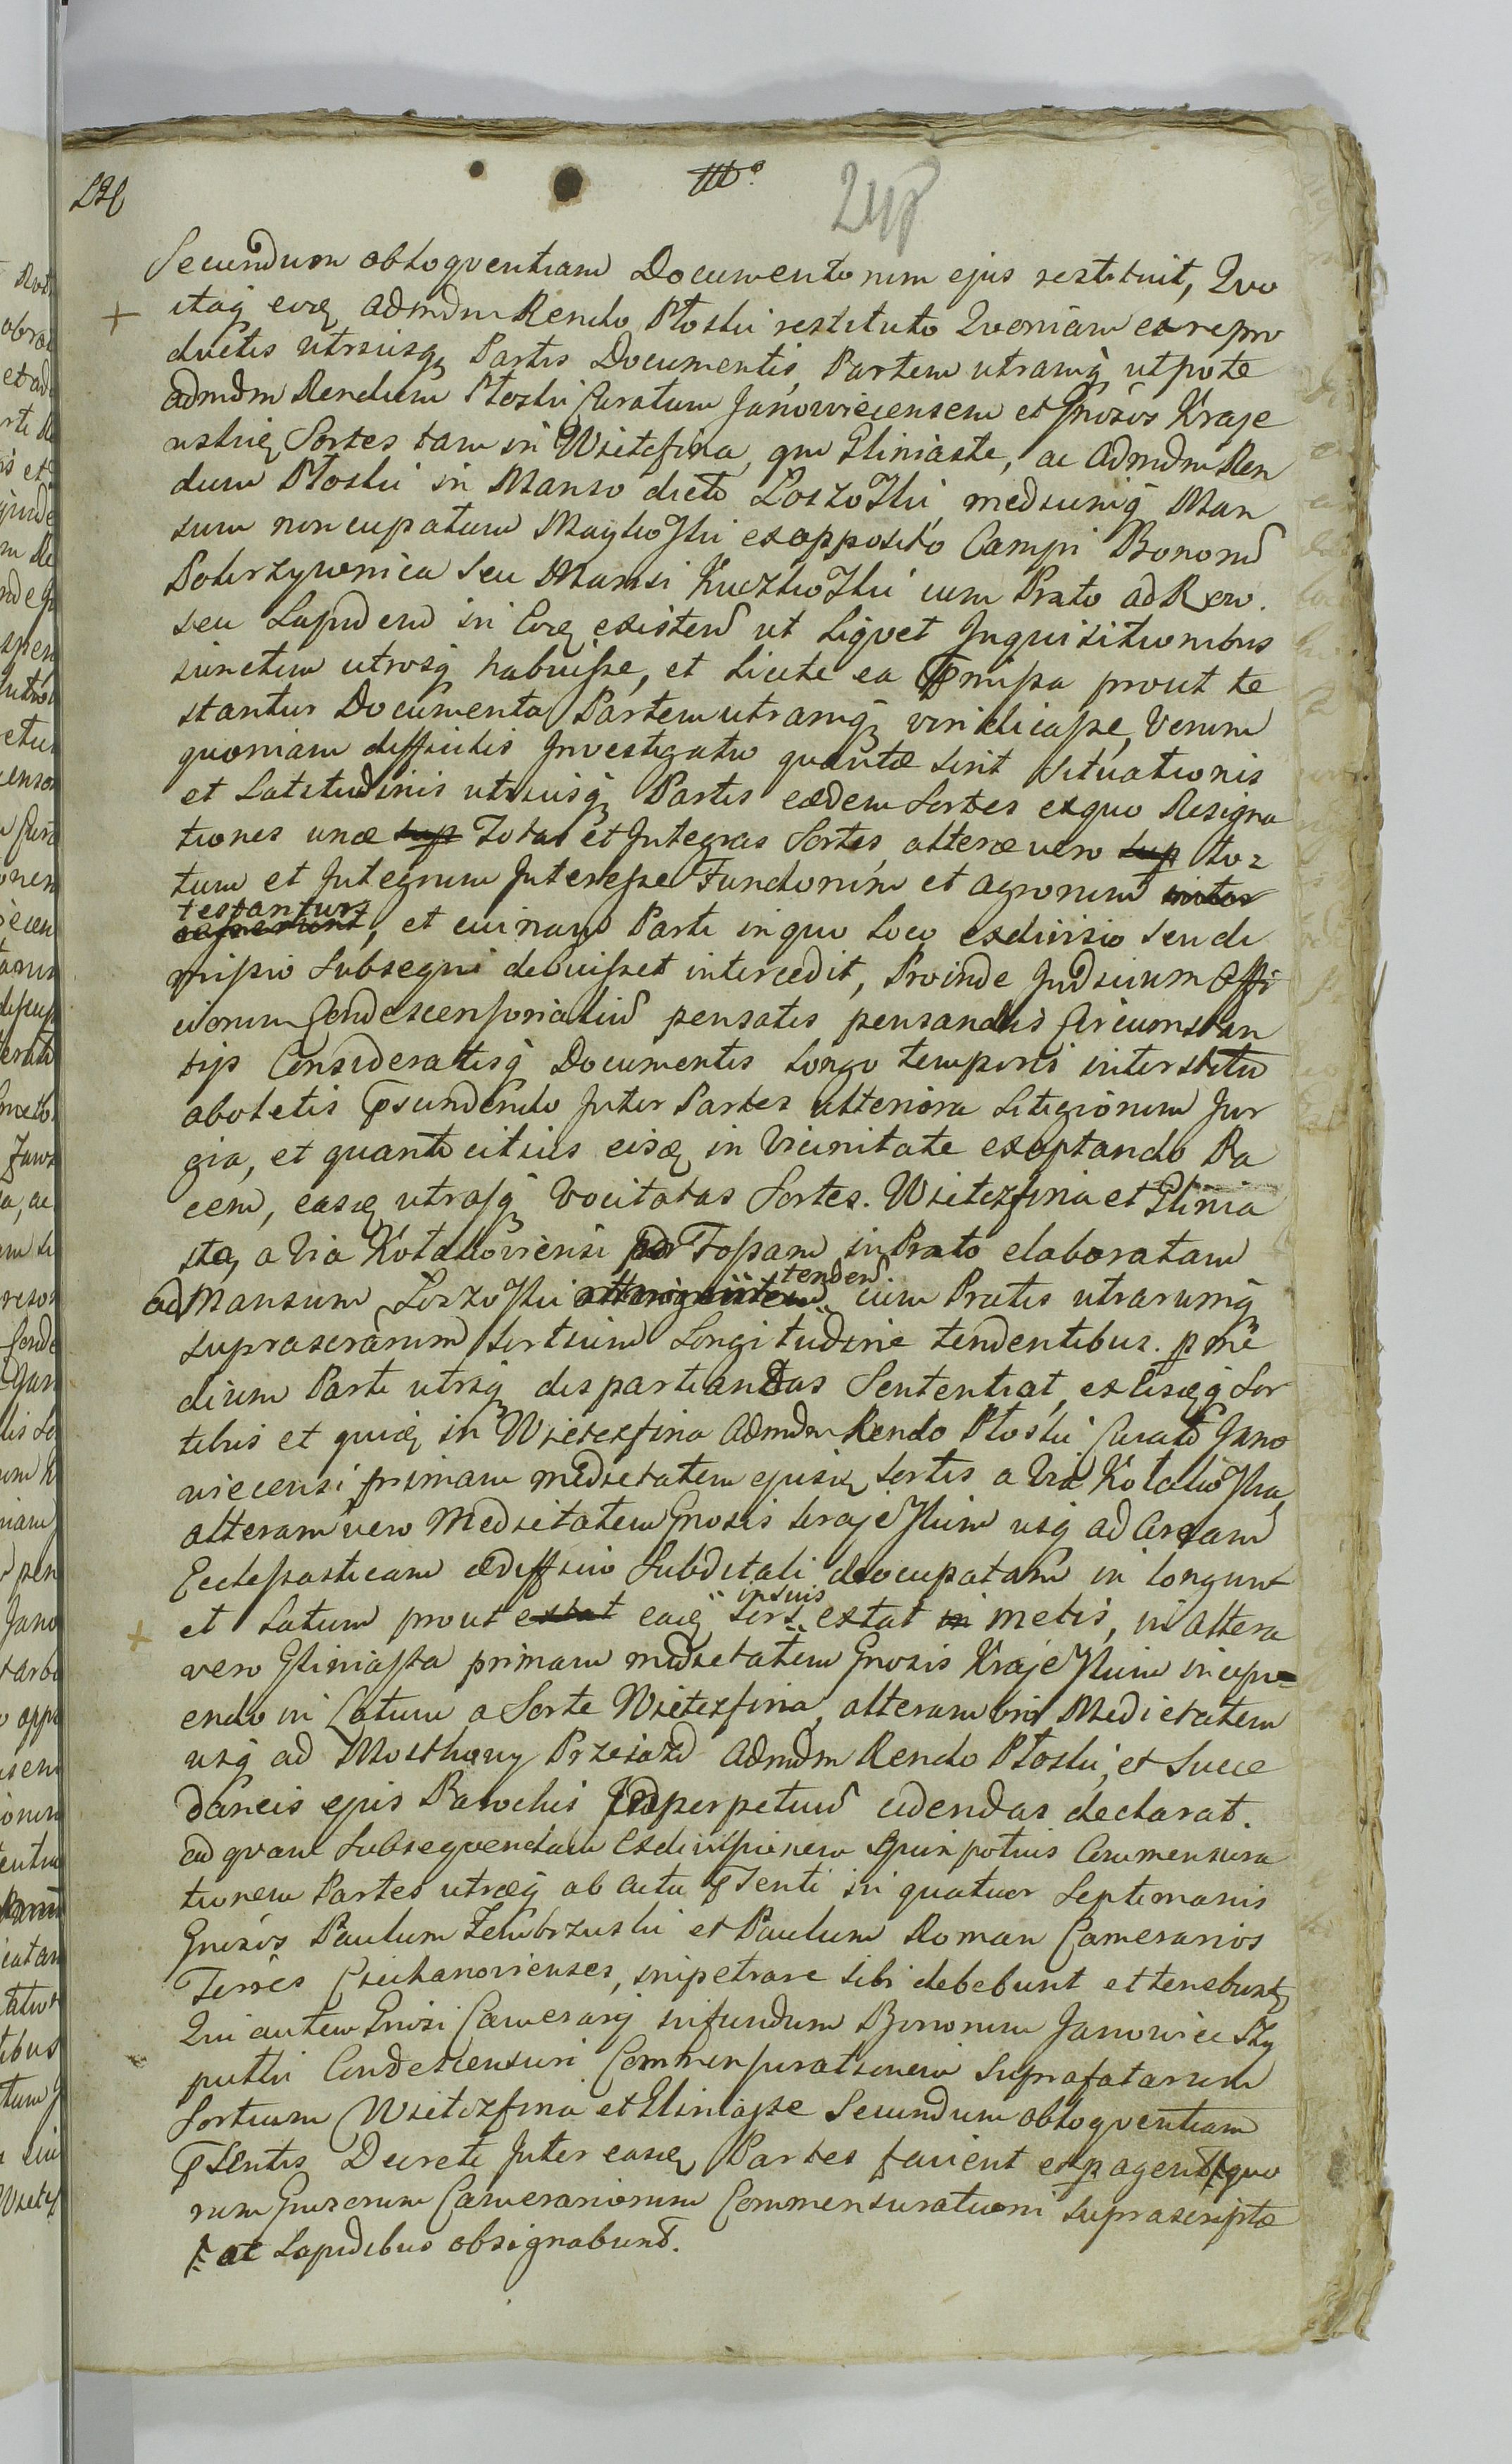 248
Secundum obloqventiam Documentorum ejus restituit, Quo
itaq eoq Admdm Rendo Ptoski restituto Qvoniam ex repro
ductis utriusq Partis Documentis, Partem utramq utpote
admdm Rendum Ptoski Curatum Janowiecensem et Gnosos Kraje
wskie Sortes tam in Wietrzfina, qm Gliniaste, ac Admdm Ren
dum Ptoski in Manso dicto Loszoski, mediumq Man
sum nuncupatum Maykoski exopposito Campi Bonorum
Pokrzywnica seu Mansi Kuczkoski cum Prato ad Rew.
seu Lapidem in Eoq existen ut liqvet Inquisitionibus
sunctum utrosq habuisse, et licite ea omissa prout te
stantur Documenta Partem utramq vindicasse, Verum
quoniam difficilis Investigatio quantæ sint situationis
et Latitudinis utriusq Partis eædem Sortes exquo Resigna
tiones unæ sup Totas et Integras Sortes, alteræ vero sup to
tum et Integrum Interesse Fundorum et agrorum
testantur, et cuinam Parti in quo Loco exdivisio seu di
missio Subseqvi debuisset intercedit, Proinde Judicium Offi
ciorum Condescensorialium pensatis pensandis Circumstan
tijs Consideratisq Documentis longo temporis interstitio
aboletis Inter Partes ulteriora Litigiorum Jur
gia, et quanto citius eisq in Vicinitate exoptando Pa
cem, easq utrasq Vocitatas Sortes. Wietrzfina et Glinia
ste, a Via Kotakoviensi per Fossam in Prato elaboratam
ad Mansum Loszoski tenden cum Pratis utrarumq
suprascrarum Sortium Longitudine tendentibus. p me
dium Parti utriq dispartiandas Sententiat, ex iisq Sor
tibus et quiq in Wietrzfina Admdm Rendo Ptoski Curato Jano
wiecensi primam medietatem ejusq Sortis a Via Kotakoska,
alteram vero Medietatem Gnosis Krajeskim usq ad Aream
Ecclesiasticam ædifficio Subditali deocupatam in longum
et latum prout extat eaq Sors in suis extat in metis, in altera
vero Gliniasta primam medietatem Gnosis Krajeskim incipi
endo in Latum a Sorte Wietrzfina, alteram vero Medietatem
usq ad Mostkowy Przeiazd Admdm Rendo Ptoski, et Succe
daneis ejus Parochis Inperpetuum cedendas declarat.
ad qvam Subseqvendam Exdivisionem quin potius Commensura
tionem Partes utræq ab actu psenti in quatuor Septimanis
Gnosos Paulum Zembrzuski et Paulum Roman Camerarios
Terres Ciechanovienses, impetrare sibi debebunt et tenebunt,
Qui autem Gnosi Camerarij in fundum Bonorum Janowiec Szy
putki Condescensuri Commensurationem Suprafatarum
Sortium Wietrzfina et Gliniaste Secundum obloqventiam
psentis Decreti Inter easq Partes facient et pagent quo
rum Gnosorum Camerariorum Commensurationi suprascriptæ
ac Lapidibus obsignabund.